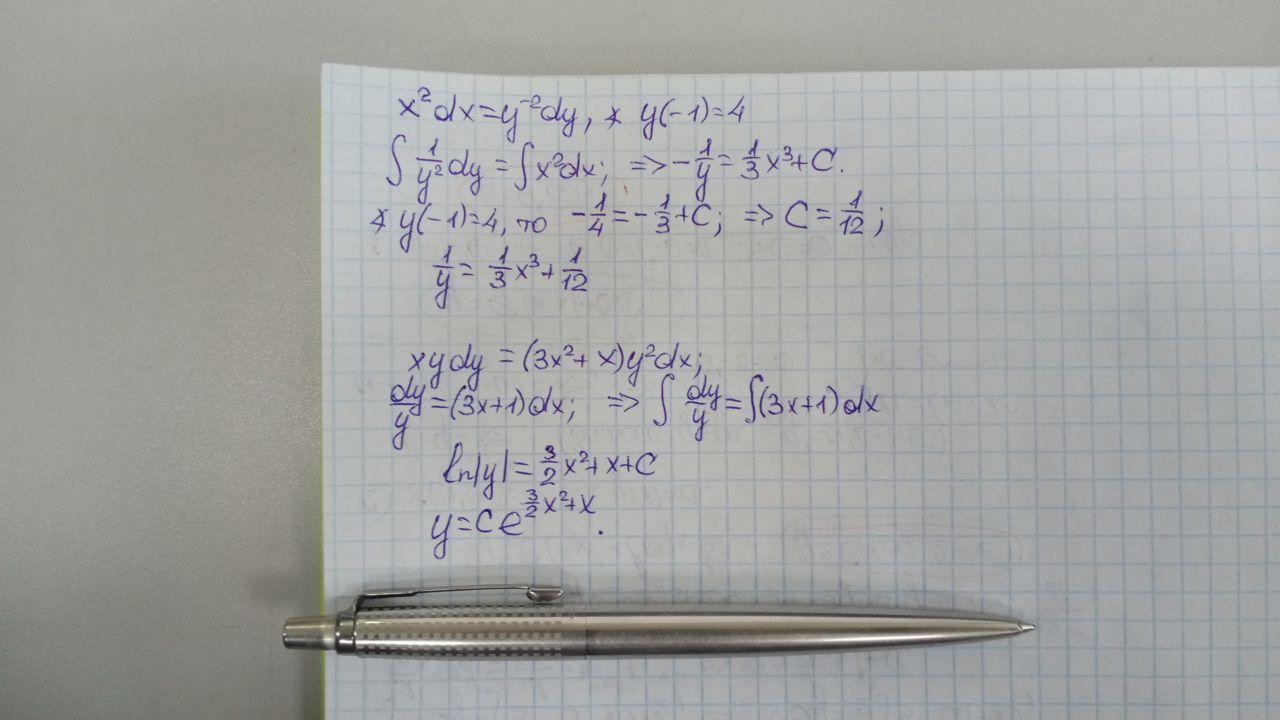 x²dx=y⁻²dy, ∡ y(-1)=4
∫ 1/y² dy = ∫x²dx; => -1/y = 1/3 x³+C.
∡ y(-1)=4, то -1/4=-1/3+C; => C=1/12;
1/y = 1/3 x³+1/12
xydy = (3x²+x)y²dx;
dy/y=(3x+1)dx; => ∫ dy/y=∫(3x+1)dx
ln|y|=3/2 x²+x+C
y=Ce^(3/2 x²+x).